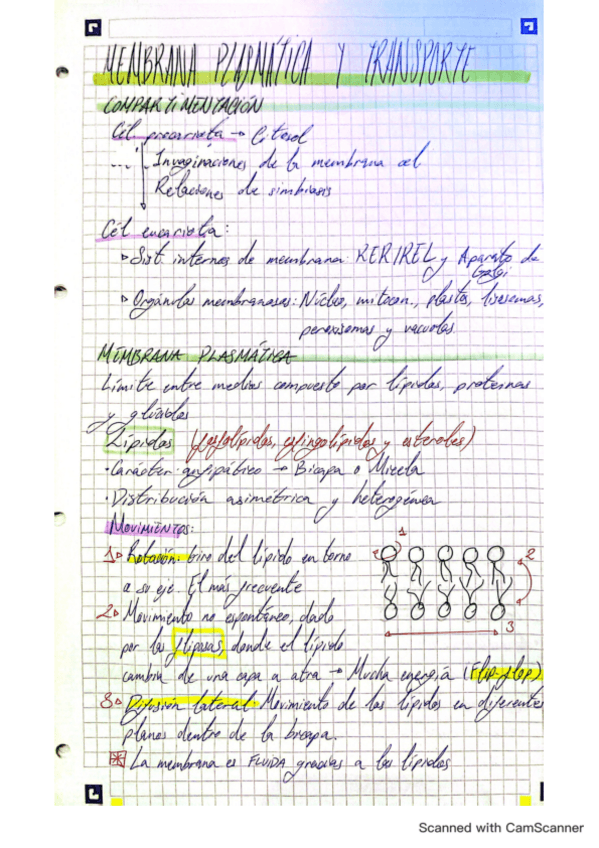 MEMBRANA PLASMÁTICA Y TRANSPORTE
COMPARTIMENTACIÓN
Cél procariota → Citosol
Invaginaciones de la membrana cel
Relaciones de simbiosis
Cél eucariota:
Sist. internos de membrana: RER/REL y Aparato de
Golgi
Orgánulos membranosos: Núcleo, mitocon., plastos, lisosomas,
peroxisomas y vacuolas
MEMBRANA PLASMÁTICA
Límite entre medios compuesto por lípidos, proteínas
y glúcidos
Lípidos (fosfolípidos, esfingolípidos y esteroles)
· Carácter anfipático → Bicapa o Micela
· Distribución asimétrica y heterogénea
MOVIMIENTOS:
1 Rotación: Giro del lípido en torno
a su eje. El más frecuente
2 Movimiento no espontáneo, dado
por las flipasas, donde el lípido
cambia de una capa a otra → Mucha energía (Flip-flop)
3 Difusión lateral: Movimiento de los lípidos en diferentes
planos dentro de la bicapa.
1
2
3
* La membrana es FLUIDA gracias a los lípidos
Scanned with CamScanner